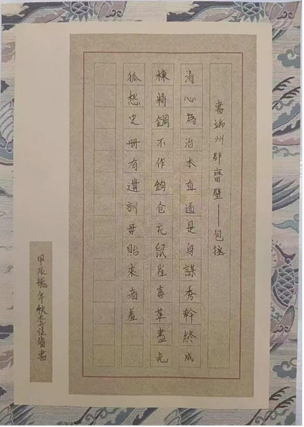 書端州郡齋壁——包拯
清心為治本直道是身謀秀幹終成
棟精鋼不作鈎仓充鼠雀喜草盡兔
狐愁史冊有遺訓毋貽來者羞
甲辰龍年秋書